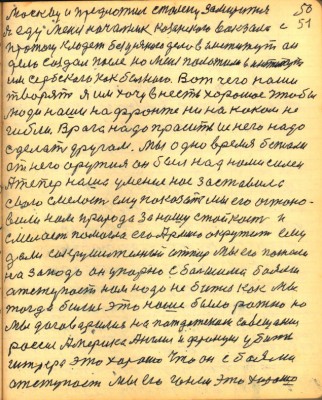 50
51
Москву и предпочтил столицу замирится
Я еду меня начальник казанского вокзала с
протоку кладет без единого дело в институт он
дело создал после но меня положили в институт
им сербского как больного. Вот чего наши
творят я им хочу внесть хорошое чтобы
люди наши на фронте ни на каком не
гибли. Врага надо просить и него надо
сделать другом. Мы одно время бежали
от него оружия он был над нами силен
А тепер наше умение нас заставило
свою смелост ему показать мы его останови
вили нам природа за нашу стойкост и
смелост помогла его Армию окружит ему
дали сокрушителный отпор Мы его погнали
на запад он упорно с большими боями
отступает нам надо не битса как мы
тогда били это наше было ратно но
мы договорилися на потсдамском совещании
росси Америка Англи и франция убить
гитлера это хорошо Что он с боями
отступает мы его гоним это хорошо